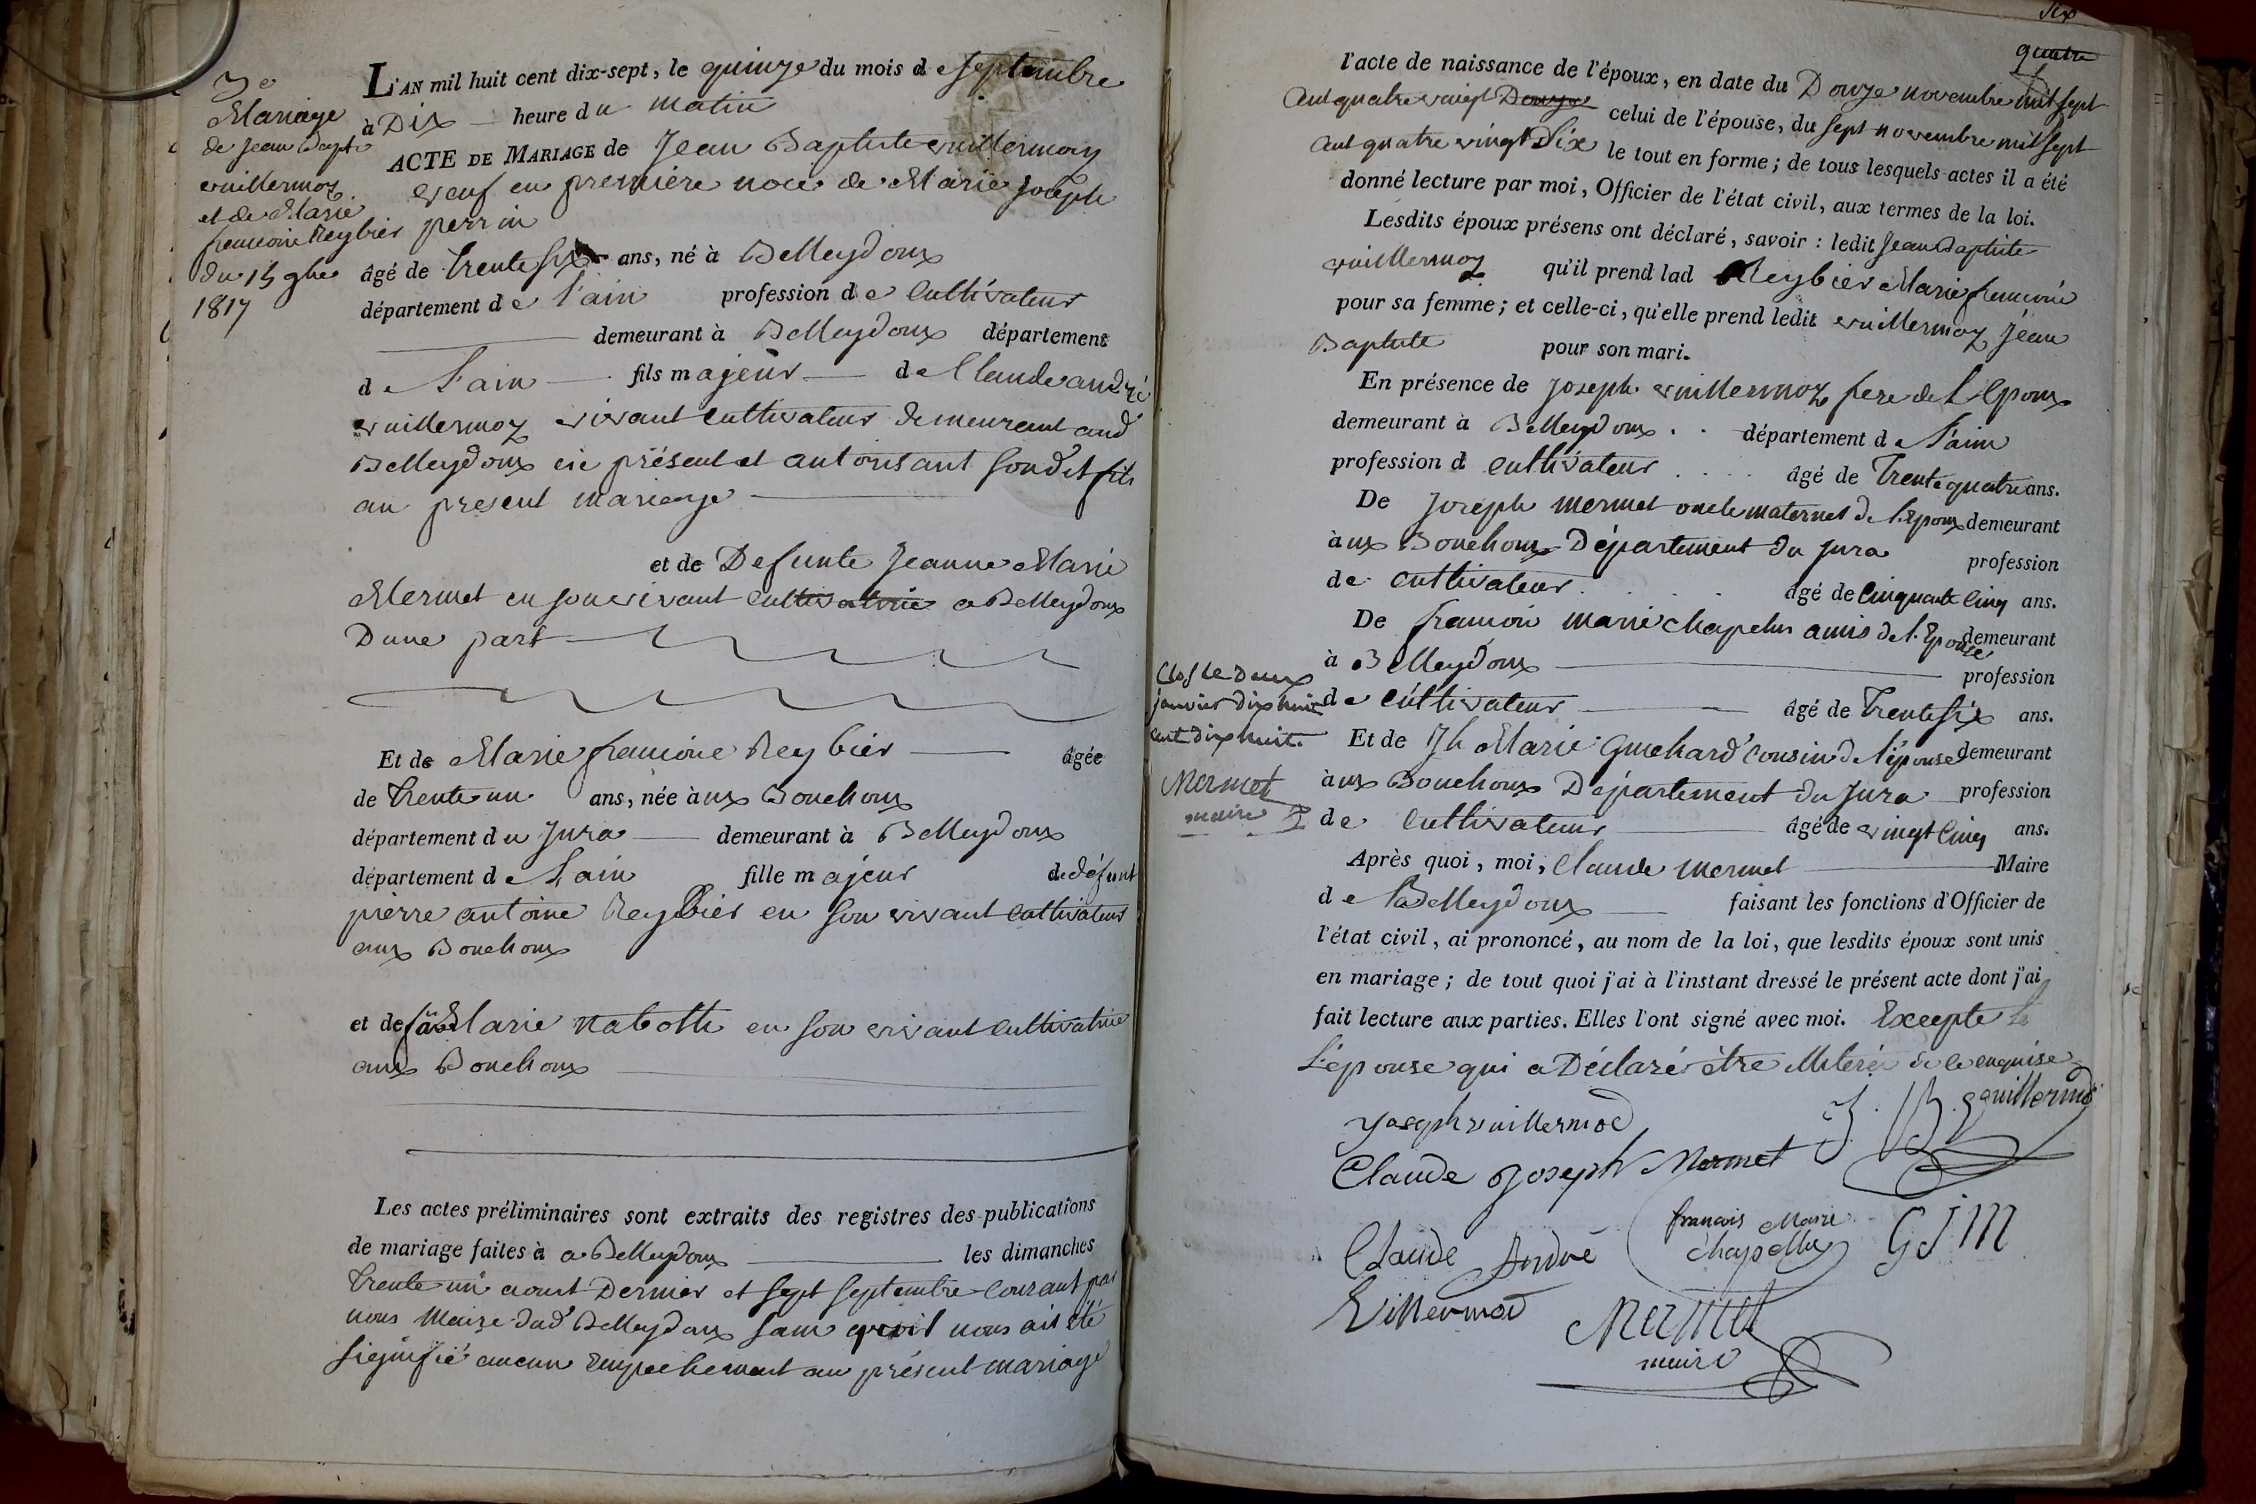 3e
Mariage
de Jean Bapte
vuillermoz
et de Marie
francoise Reybier
du 15 9bre
1817
L'AN mil huit cent dix-sept, le quinze du mois de septembre
à Dix heure du matin
ACTE DE MARIAGE de Jean Baptiste vuillermoz
veuf en premiére noce de Marie Joseph
perrin
âgé de trente six ans, né à Belleydoux
département de l'ain profession de Cultivateur
demeurant à Belleydoux département
de L'ain fils majeur de Claude andré
vuillermoz vivant cultivateur demeurant aud
Belleydoux ici présent et autorisant sondit fils
au present mariage
et de Defunte Jeanne Marie
Mermet en son vivant cultivatrice a Belleydoux
Dune part
Et de Marie francoise Reybier âgée
de trente un ans, née à aux Bouchoux
département du Jura demeurant à Belleydoux
département de L'ain fille majeur de défunt
pierre antoine Reybier en son vivant cultivateur
aux Bouchoux
et de Marie Nabotte en son vivant cultivatrice
aux Bouchoux
Les actes préliminaires sont extraits des registres des publications
de mariage faites à a Belleydoux les dimanches
trente un aout Dernier et sept septembre courant par
nous Maire dud Belleydoux sans qu'il nous ait été
signifié aucun Empechement au présent mariage
six
quatre
l'acte de naissance de l'époux, en date du Douze novembre mil sept
Cent quatre vingt Douze celui de l'épouse, du sept novembre mil sept
Cent quatre vingt Six le tout en forme; de tous lesquels actes il a été
donné lecture par moi, Officier de l'état civil, aux termes de la loi.
Lesdits époux présens ont déclaré, savoir : ledit Jean Baptiste
vuillermoz qu'il prend lad Reybier Marie francoise
pour sa femme; et celle-ci, qu'elle prend ledit vuillermoz Jean
Baptiste pour son mari.
En présence de Joseph vuillermoz frere de L'Epoux
demeurant à Belleydoux département de L'ain
profession d cultivateur âgé de trente quatre ans.
De Joseph Mermet oncle maternel de l'Epoux demeurant
à aux Bouchoux Département du Jura profession
de cultivateur âgé de cinquante cinq ans.
De francois marie chapelu amis de l'Epouse demeurant
à Belleydoux profession
de cultivateur âgé de trente six ans.
Et de Jh Marie Guichard cousin de l'épouse demeurant
à aux Bouchoux Département du Jura profession
de Cultivateur âgé de vingt cinq ans.
Après quoi, moi, Claude Mermet Maire
de Belleydoux faisant les fonctions d'Officier de
l'état civil, ai prononcé, au nom de la loi, que lesdits époux sont unis
en mariage; de tout quoi j'ai à l'instant dressé le présent acte dont j'ai
fait lecture aux parties. Elles l'ont signé avec moi. Excepte
L'épouse qui a Déclaré être illiteré de ce enquise
Clos le Deux
janvier dix huit
cent dix huit.
Mermet
maire
Joseph vuillermod
J. B. vuillermod
Claude Joseph Mermet
Claude André
Villermod
francois Marie
chapellu
G J M
Mermet
maire